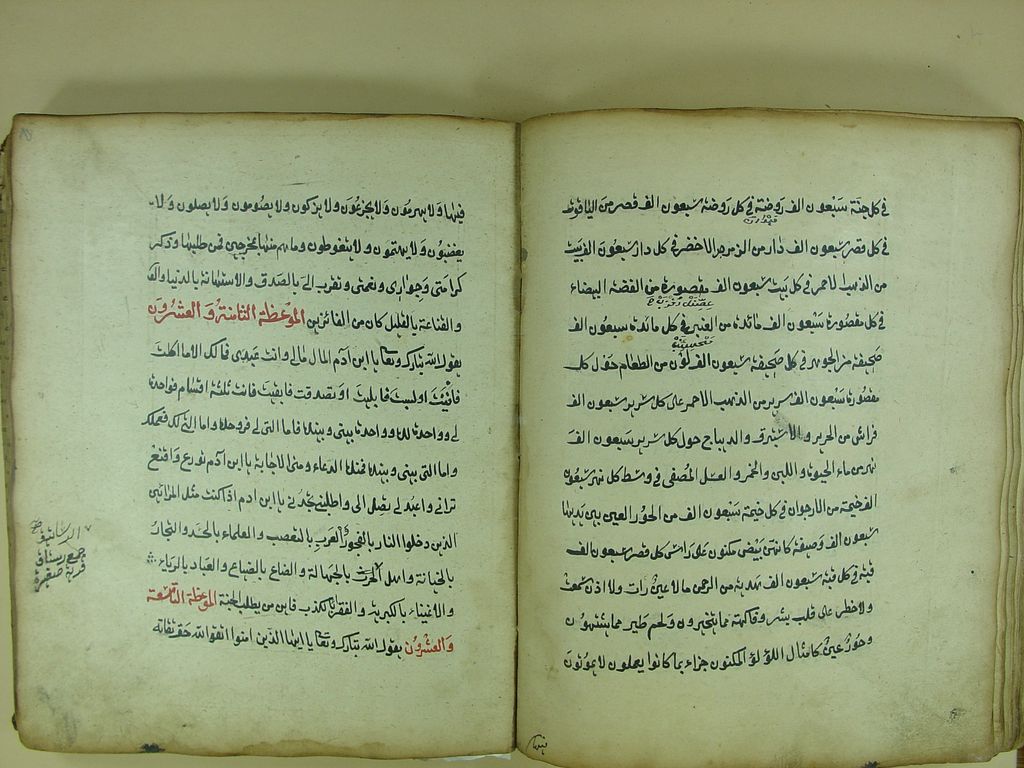 في كل جنة سبعون الف روضة في كل روضة سبعون الف قصر من الياقوت
في كل قصر سبعون الف دار من الزمرد الاخضر في كل دار سبعون الف بيت
من الذهب الاحمر في كل بيت سبعون الف مقصورة من الفضة البيضاء
في كل مقصورة سبعون الف مائدة من العنبر في كل مائدة سبعون الف
صحيفة من الجوهر في كل صحيفة سبعون الف لون من الطعام حول كل
مقصورة سبعون الف سرير من الذهب الاحمر على كل سرير سبعون الف
فراش من الحرير والاستبرق والديباج حول كل سرير سبعون الف
نهر من ماء الحيوة واللبن والخمر والعسل المصفى في وسط كل نهر سبعون
الف خيمة من الارجوان في كل خيمة سبعون الف من الحور العين بين يديها
سبعون الف وصيفة كانهن بيض مكنون على راس كل قصر سبعون الف
قبة في كل قبة سبعون الف هدية من الرحمن ما لا عين رات ولا اذن سمعت
ولا خطر على قلب بشر وفاكهة مما يتخيرون ولحم طير مما يشتهون
وحور عين كامثال اللؤلؤ المكنون جزاء بما كانوا يعملون لا يموتون
فيها
فيها ولا يهرمون ولا يحزنون ولا يصومون ولا يصلون ولا
كرامتي وجواري ونعمتي وتقرب الى بالصدق والاستهانة بالدنيا
والقناعة بالقليل كان من الفائزين الموعظة الثامنة والعشرون
يقول الله تبارك وتعا يا ابن آدم المال مالي وانت عبدي فما لك الا ما اكلت
فافنيت او لبست فابليت او تصدقت فابقيت فانت ثلثة اقسام فواحدة
لي وواحدة لك وواحدة بيني وبينك فاما التي لي فروحك واما التي لك فعملك
واما التي بيني وبينك فمنك الدعاء ومني الاجابة يا ابن آدم تورع واقنع
تراني واعبدني تصل الي واطلبني تجدني يا ابن ادم اذا كنت مثل
الذين دخلوا النار بالفجور العرب بالتعصب والعلماء بالحسد والتجار
بالخيانة واهل الحرث بالجهالة والصناع بالضياع والعباد بالرياء
والاغنياء بالكبر والفقراء بالكذب فاين من يطلب الجنة الموعظة التاسعة
والعشرون يقول الله تبارك وتعا يا ايها الذين امنوا اتقوا الله حق تقاته
الرساتيق
جمع رستاق
قرية صغيرة